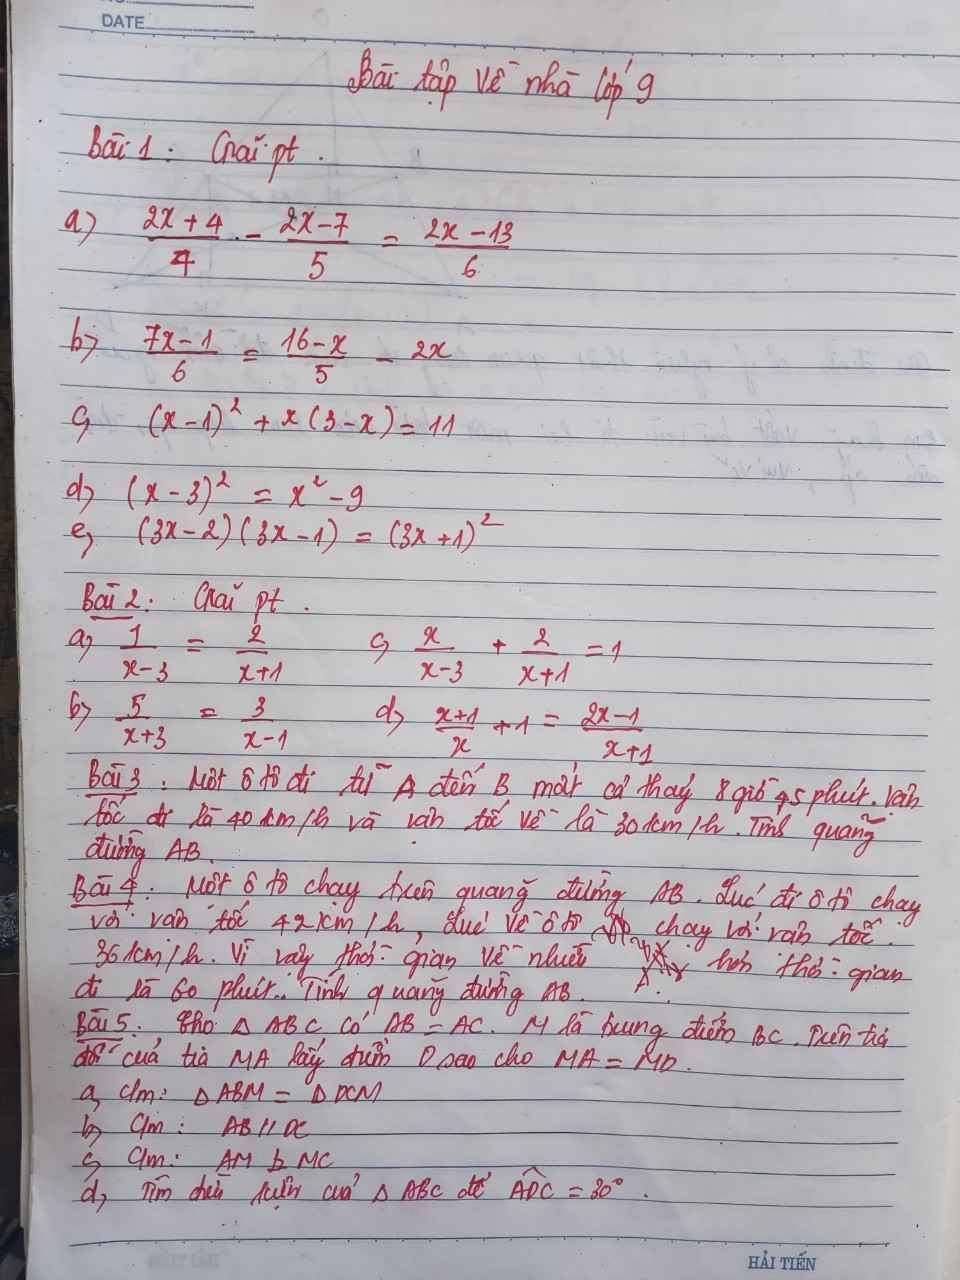 DATE
Bài tập về nhà lớp 9
Bài 1 : Giải pt .
a) (2x + 4)/4 - (2x - 7)/5 = (2x - 13)/6
b) (7x - 1)/6 = (16 - x)/5 - 2x
c) (x - 1)² + x(3 - x) = 11
d) (x - 3)² = x² - 9
e) (3x - 2)(3x - 1) = (3x + 1)²
Bài 2 : Giải pt .
a) 1/(x - 3) = 2/(x + 1) c) x/(x - 3) + 2/(x + 1) = 1
b) 5/(x + 3) = 3/(x - 1) d) (x + 1)/x + 1 = (2x - 1)/(x + 1)
Bài 3 : Một ô tô đi từ A đến B mất cả thảy 8 giờ 45 phút. Vận
tốc đi là 40 km/h và vận tốc về là 30 km/h. Tính quãng
đường AB.
Bài 4 : Một ô tô chạy trên quãng đường AB. Lúc đi ô tô chạy
với vận tốc 42 km/h, Lúc về ô tô chạy với vận tốc
36 km/h. Vì vậy thời gian về nhiều hơn thời gian
đi là 60 phút. Tính quãng đường AB.
Bài 5 : Cho △ ABC có AB = AC. M là trung điểm BC. Trên tia
đối của tia MA lấy điểm D sao cho MA = MD.
a, C/m : △ ABM = △ DCM
b, C/m : AB // DC
c, C/m : AM ⊥ MC
d, Tìm điều kiện của △ ABC để ADC = 30° .
HẢI TIẾN